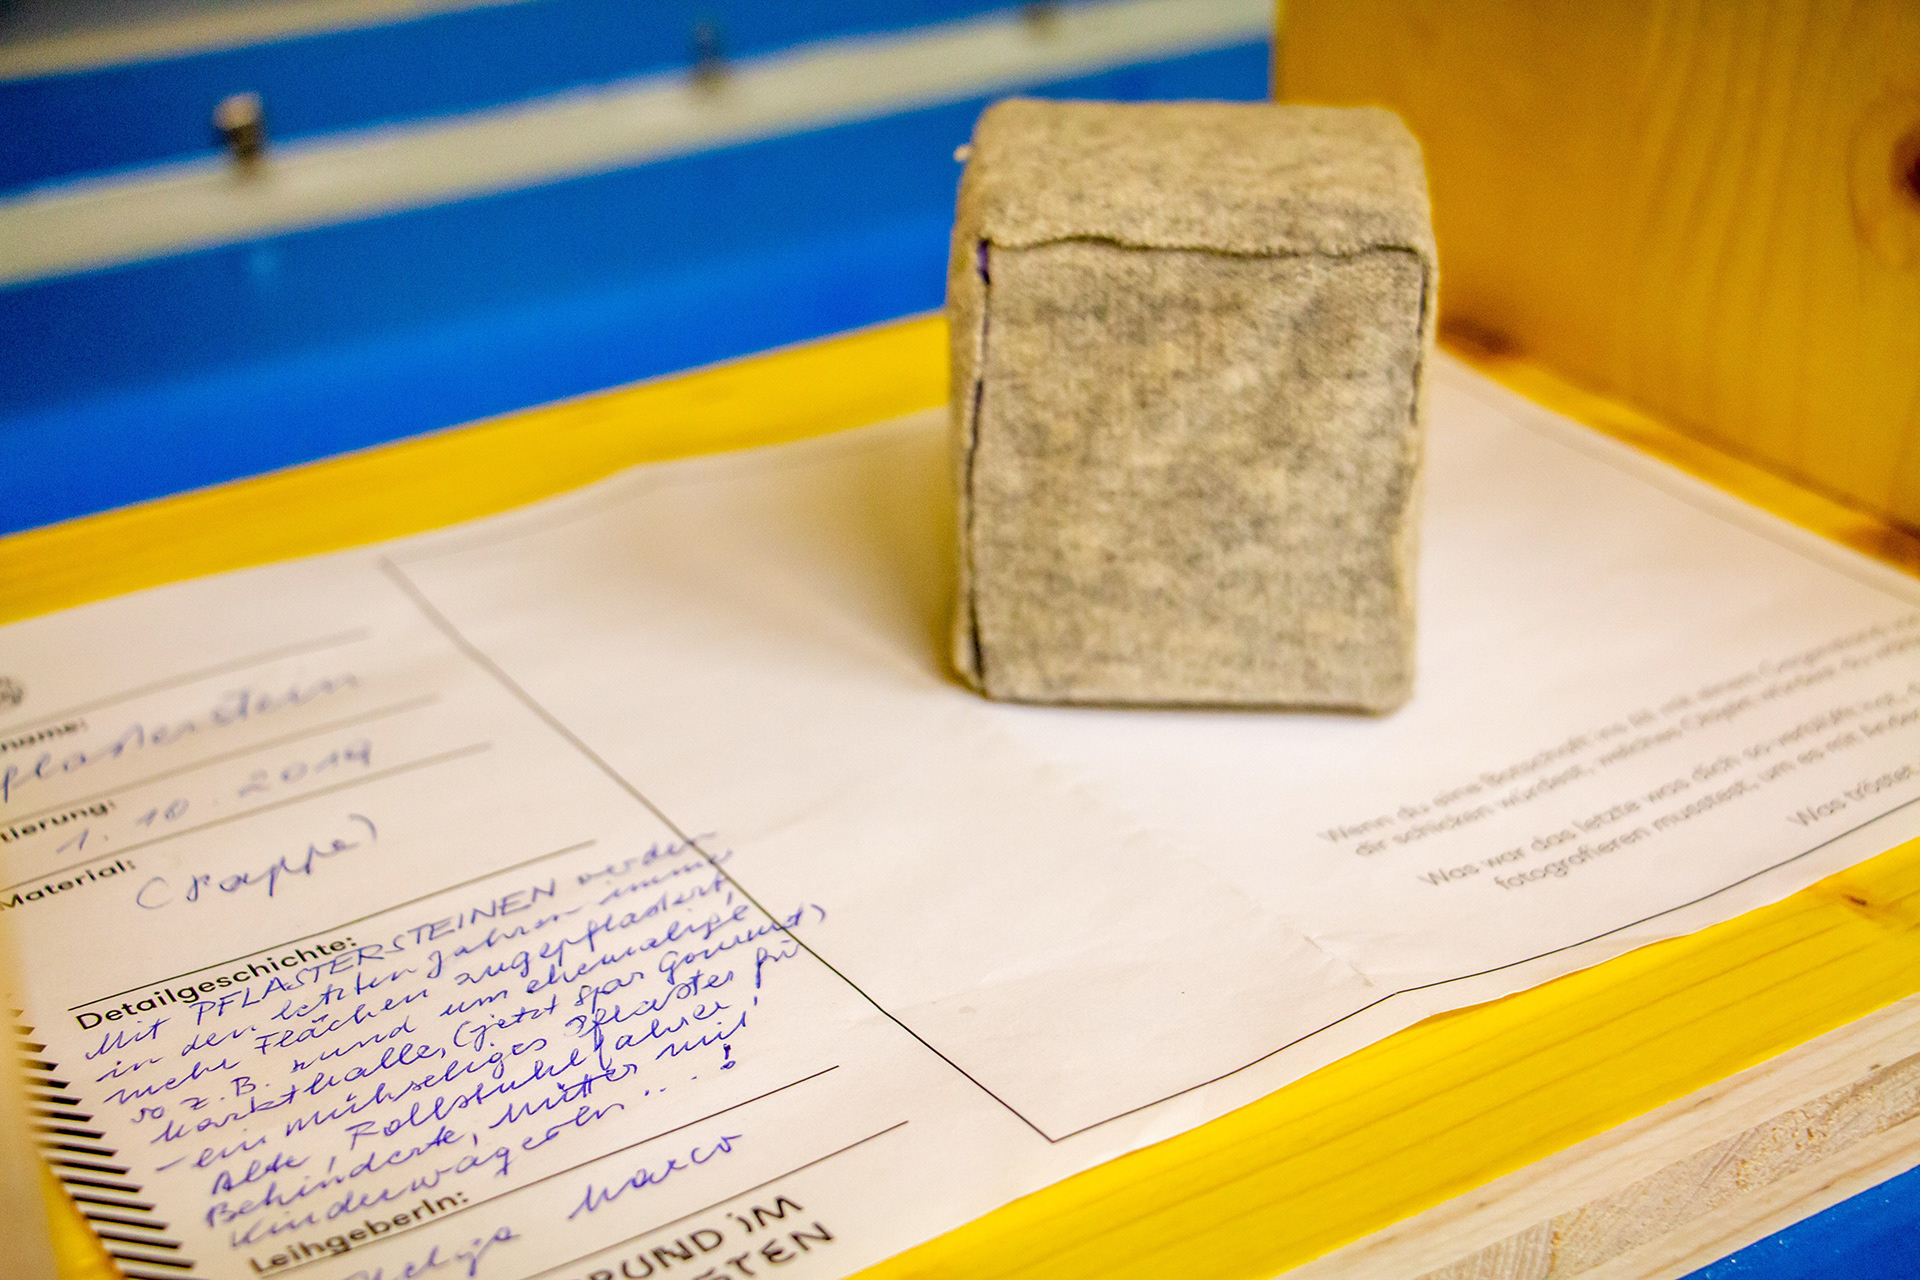 name:
Pflasterstein
tierung:
1.10.2019
Material:
(Pappe)
Detailgeschichte:
Mit PFLASTERSTEINEN werden
in den letzten Jahren immer
mehr Flächen zugepflastert,
so z.B. rund um ehemalige
Markthalle, (jetzt Spar Gourmet)
– ein mühseliges Pflaster für
Alte, Rollstuhlfahrer,
Behinderte, Mütter mit
Kinderwägerln....!
LeihgeberIn:
Helga Marco
RUND iM
STEN
Wenn du eine Botschaft ins All mit einem
dir schicken würdest, welches Objekt würdest du
Was war das letzte was dich so verblüfft hat,
fotografieren musstest, um es mit
Was tröstet